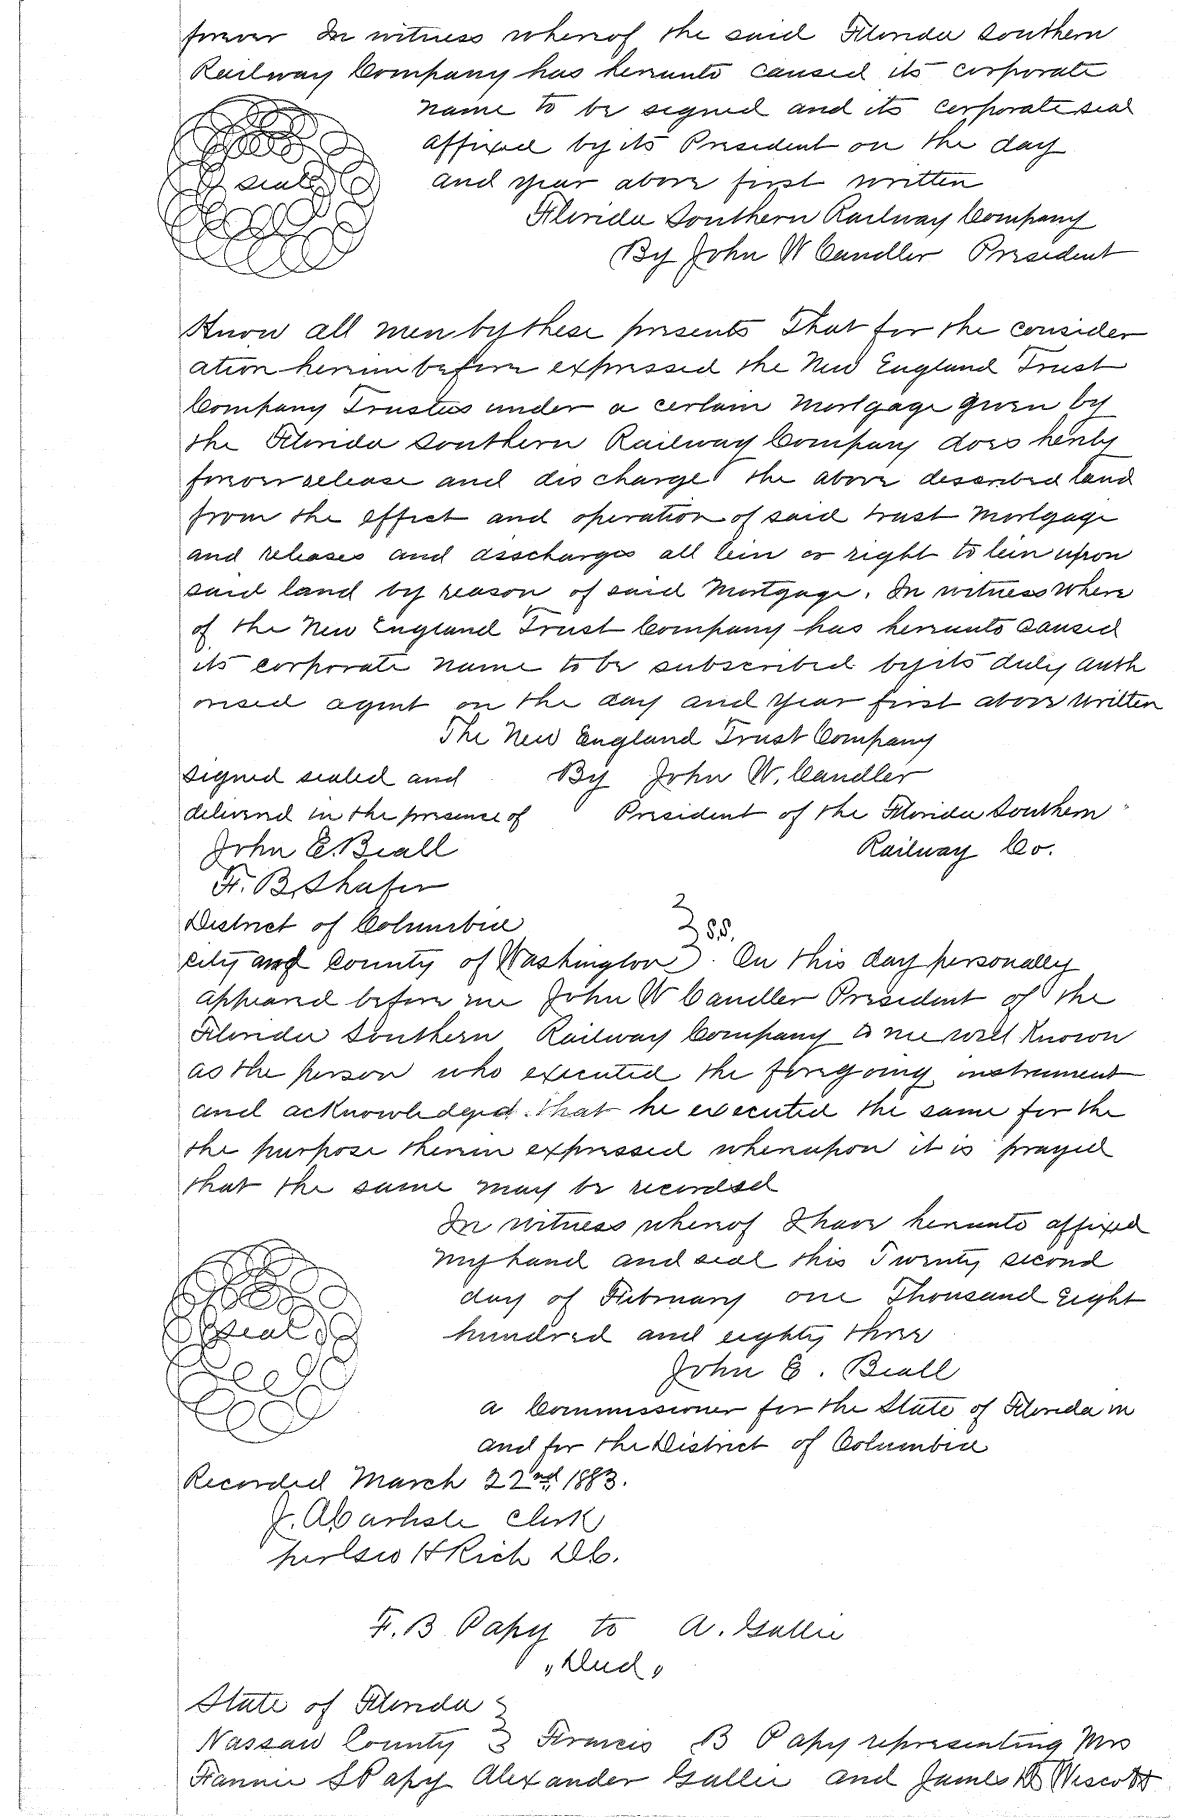 forever In witness whereof the said Florida Southern
Railway Company has hereunto caused its corporate
name to be signed and its corporate seal
affixed by its President on the day
seal
and year above first written
Florida Southern Railway Company
By John W Candler President
Know all men by these presents That for the consider
ation herein before expressed the New England Trust
Company Trustees under a certain Mortgage given by
the Florida Southern Railway Company does hereby
forever release and discharge the above described land
from the effect and operation of said trust Mortgage
and releases and disscharges all lein or right to lein upon
said land by reason of said Mortgage. In witness Where
of the New England Trust Company has hereunto caused
its corporate name to be subscribed by its duly auth
orised agent on the day and year first above written
The New England Trust Company
signed sealed and By John W. Candler
delivered in the presence of President of the Florida Southern
John E. Beall Railway Co.
F. B. Shafer
District of Columbia
City and County of Washington } S.S. On this day personally
appeared before me John W Candler President of the
Florida Southern Railway Company to me well Known
as the person who executed the foregoing instrument
and acknowledged that he executed the same for the
the purpose therein expressed whereupon it is prayed
that the same may be recorded
In witness whereof I have hereunto affixed
my hand and seal this Twenty second
day of February one Thousand Eight
seal
hundred and eighty three
John E. Beall
a Commissioner for the State of Florida in
and for the District of Columbia
Recorded March 22nd 1883.
J. A Carlisle Clerk
per Geo H Rich D.C.
F. B Papy to A. Gallie
"Deed"
State of Florida }
Nassau County } Francis B Papy representing Mrs
Fannie S Papy Alexander Gallie and James D Wescott